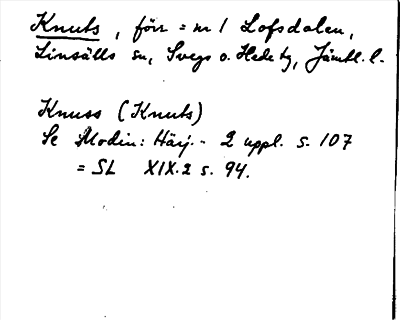 Knuts, förr = nr 1 Lofsdalen,
Linsälls sn, Svegs o. Hede tg, Jämtl. l.
Knuss (Knuts)
Se Modin: Härj. - 2 uppl. s. 107
= SL XIX.2 s. 94.